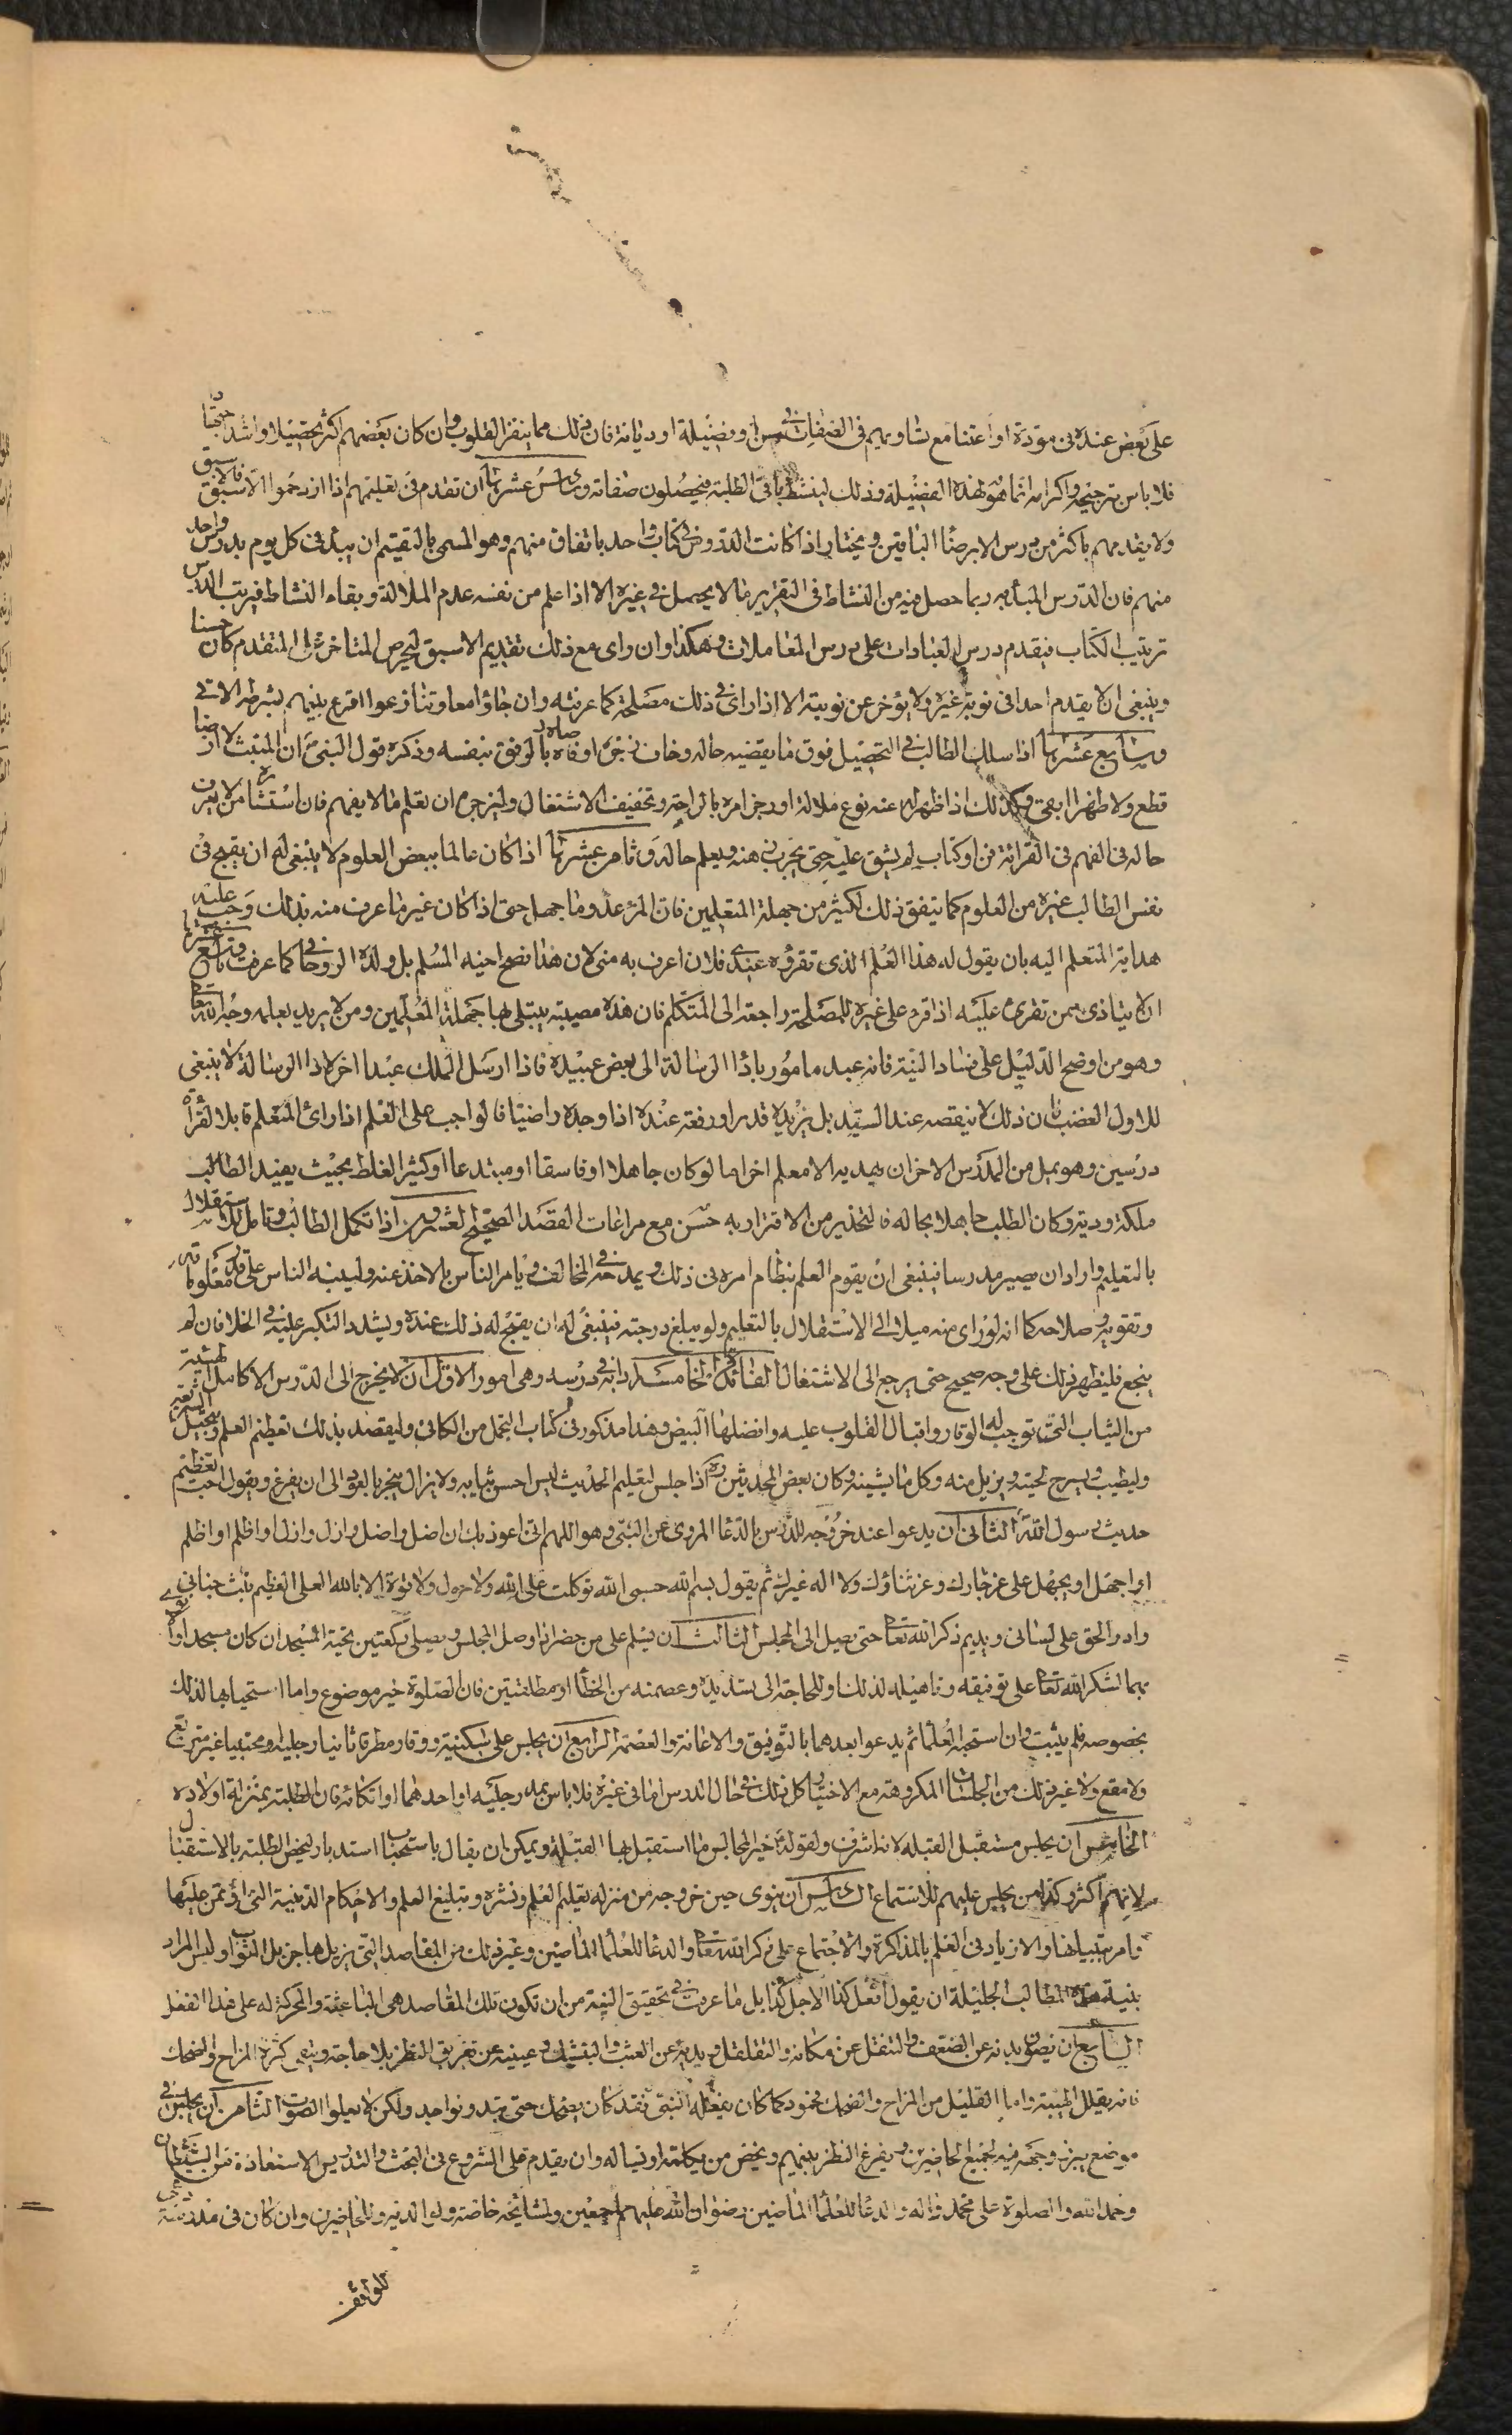 على بعض عنده في مودة او اعتنا مع تساويهم في الصفات من سن او فضيلة او ديانة فان ذلك مما ينفر القلوب وان كان بعضهم اكثر تحصيلا واشد اجتهادا
فلا باس بترجيحه واكرامه انما هو لهذه الفضيلة وذلك لينشط باقي الطلبة فيحصلون صفاته وسادس عشرها ان تقدم في تعليمهم اذا ازدحموا الاسبق فالاسبق
ولا يقدمهم باكثر من درس الا برضا الباقين ويختار اذا كانت الدروس في كتاب واحد باتفاق منهم وهو المسمى بالتقسيم ان يبدأ في كل يوم بدرس واحد
منهم فان الدرس المبدأ به ربما حصل فيه من النشاط في التقرير ما لا يحصل في غيره الا اذا علم من نفسه عدم الملالة وبقاء النشاط فيرتب الدرس
ترتيب الكتاب فيقدم درس العبادات على درس المعاملات وهكذا وان راى مع ذلك تقديم الاسبق ليحرص المتاخر على المتقدم كان حسنا
وينبغي ان لا يقدم احدا في نوبة غيره ولا يؤخر عن نوبته الا اذا راى في ذلك مصلحة كما عرفته وان جاؤا معا وتنازعوا اقرع بينهم بشرطه الاتي
وسابع عشرها اذا سلك الطالب في التحصيل فوق ما يقضيه حاله وخاف ضجره اوصاه بالرفق بنفسه وذكره قول النبي ان المنبت لا ارضا
قطع ولا ظهرا ابقى وكذلك اذا ظهر له عنه نوع ملالة او ضجر امره بالراحة وتخفيف الاشتغال وليزجره ان تعلم ما لا يفهم فان استشاره من لا يعرف
حاله في الفهم في القرائة فن او كتاب لم يشق عليه حتى يجرب ذهنه ويعلم حاله وثامن عشرها اذا كان عالما ببعض العلوم لا ينبغي له ان يقبح في
نفس الطالب غيره من العلوم كما يتفق ذلك لكثير من جهلة المتعلمين فان المرء عدو ما جهل حتى اذا كان غيره ما عرف منه بذلك وجب عليه
هداية المتعلم اليه بان يقول له هذا العلم الذي تقرؤه عندي فلان اعرف به مني لان هذا نصح اخيه المسلم بل ولده الروحاني كما عرفت وتاسع عشرها
ان لا يتاذى ممن تقرى عليه اذا قرء على غيره للمصلحة راجعة الى المتكلم فان هذه مصيبة يبتلى بها جهلة المعلمين ومن لا يريد بعلمه وجه الله تعالى
وهو من اوضح الدليل على فساد النية فانه عبد مامور باداء الرسالة الى بعض عبيده فاذا ارسل الملك عبدا اخر لاداء الرسالة لا ينبغي
للاول الغضب فان ذلك لا ينقصه عند السيد بل يزيده قدرا ورفعة عنده اذا وجده راضيا فالواجب على العلم اذا راى المتعلم قابلا لقراة
درسين وهو يمل من المدرس الاخر ان يهديه الا معلم اخر اما لو كان جاهلا او فاسقا او مبتدعا او كثير الغلط بحيث يفيد الطالب
ملكة ردية وكان الطلب جاهلا بحاله فالتحذير من الاغترار به حسن مع مراعات القصد الصحيح العشرون اذا تكمل الطالب وتاهل للاستقلال
بالتعليم واراد ان يصير مدرسا فينبغي ان يقوم العلم بنظام امره في ذلك ويمدحه في المحافل ويامر الناس بالاخذ عنه ولينبه الناس على قدر معلوماته
وتقويه وصلاحه كما انه لو راى منه ميلا الى الاستقلال بالتعليم ولو يبلغ درجته فينبغي له ان يقبح له ذلك عنده ويشدد النكير عليه في الخلا فان لم
ينجع فليظهر ذلك على وجه صحيح حتى يرجع الى الاشتغال الفائدة الخامسة ادابه في درسه وهي امور الاول ان لا يخرج الى الدرس الا كامل الهيئة
من الثياب التي توجب له الوقار واقبال القلوب عليه وافضلها البيض وهذا مذكور في كتاب التجمل من الكافي وليقصد بذلك تعظيم العلم وتبجيل الشريعة
وليطيب ويسرح لحيته ويزيل منه وكل ما يشينه وكان بعض المحدثين اذا جلس لتعليم الحديث لبس احسن ثيابه ولا يزال يبخر بالعود الى ان يفرغ ويقول احب تعظيم
حديث رسول الله الثاني ان يدعوا عند خروجه للدرس بالدعا المروي عن النبي وهو اللهم اني اعوذ بك ان اضل واضل وازل وازل او اظلم او اظلم
او اجهل او يجهل علي عز جارك وعز ثناؤك ولا اله غيرك ثم يقول بسم الله حسبي الله توكلت على الله ولا حول ولا قوة الا بالله العلي العظيم ثبت جناني
وادر الحق على لساني ويديم ذكر الله تعالى حتى يصل الى المجلس الثالث ان يسلم على من حضر اذا وصل المجلس ويصلي ركعتين تحية المسجد ان كان مسجد او
بهما لشكر الله تعالى على توفيقه وتاهيله لذلك او للحاجة الى تسديده وعصمته من الخطأ او مطلقتين فان الصلوة خير موضوع واما استحبابها لذلك
بخصوصه فلم يثبت وان استحبه العلما ثم يدعوا بعدهما بالتوفيق والاعانة والعصمة الرابع ان يجلس على سكينة ووقار مطرقا ثانيا رجليه او محتبيا غير متربع
ولا مقع ولا غير ذلك من الجلسات المكروهة مع الاختيار كل ذلك في حال الدرس اما في غيره فلا باس بمد رجليه او احدهما او اتكائه فان الطلبة بمنزلة اولاده
الخامس ان يجلس مستقبل القبلة لانه اشرف ولقوله خير المجالس ما استقبل بها القبلة ويمكن ان يقال باستحباب استدبار ليخص الطلبة بالاستقبال
لانهم اكثر وكذا من يجلس عليهم للاستماع السادس ان ينوي حين خروجه من منزله تعليم العلم ونشره وتبليغ العلم والاحكام الدينية التي اؤتمن عليها
وامر بتبيانها والازدياد في العلم بالمذاكرة والاجتماع على ذكر الله تعالى والدعا للعلما الماضين وغير ذلك من المقاصد التي يزيل بها جزيل الثواب وليس المراد
بنية هذه المطالب الجليلة ان يقول افعل كذا الاجل كذا بل ما عرفت في تحقيق النية من ان تكون تلك المقاصد هي الباعثة والمحركة له على هذا الفعل
السابع ان يصون بدنه عن الضعف والتنقل عن مكانه والتقلقل ويديه عن العبث والتشبيك وعينيه عن تفريق النظر بلا حاجة ويتقي كثرة المزاح والضحك
فانه يقلل الهيبة واما القليل من المزاح والضحك فمحمود كما كان يفعله النبي فقد كان يضحك حتى تبدو نواجيذه ولكن لا يعلوا الصوت الثامن ان يجلس في
موضع يبرز وجهه فيه لجميع الحاضرين ويفرغ النظر بينهم ويخص من يكلمه او يساله وان يقدم على الشروع في البحث والتدريس الاستعاذة من الشيطان
وحمد الله والصلوة على محمد واله والدعا للعلما الماضين رضوان الله عليهم اجمعين ولمشايخه خاصة ولوالديه وللحاضرين وان كان في مدرسة
للواقف